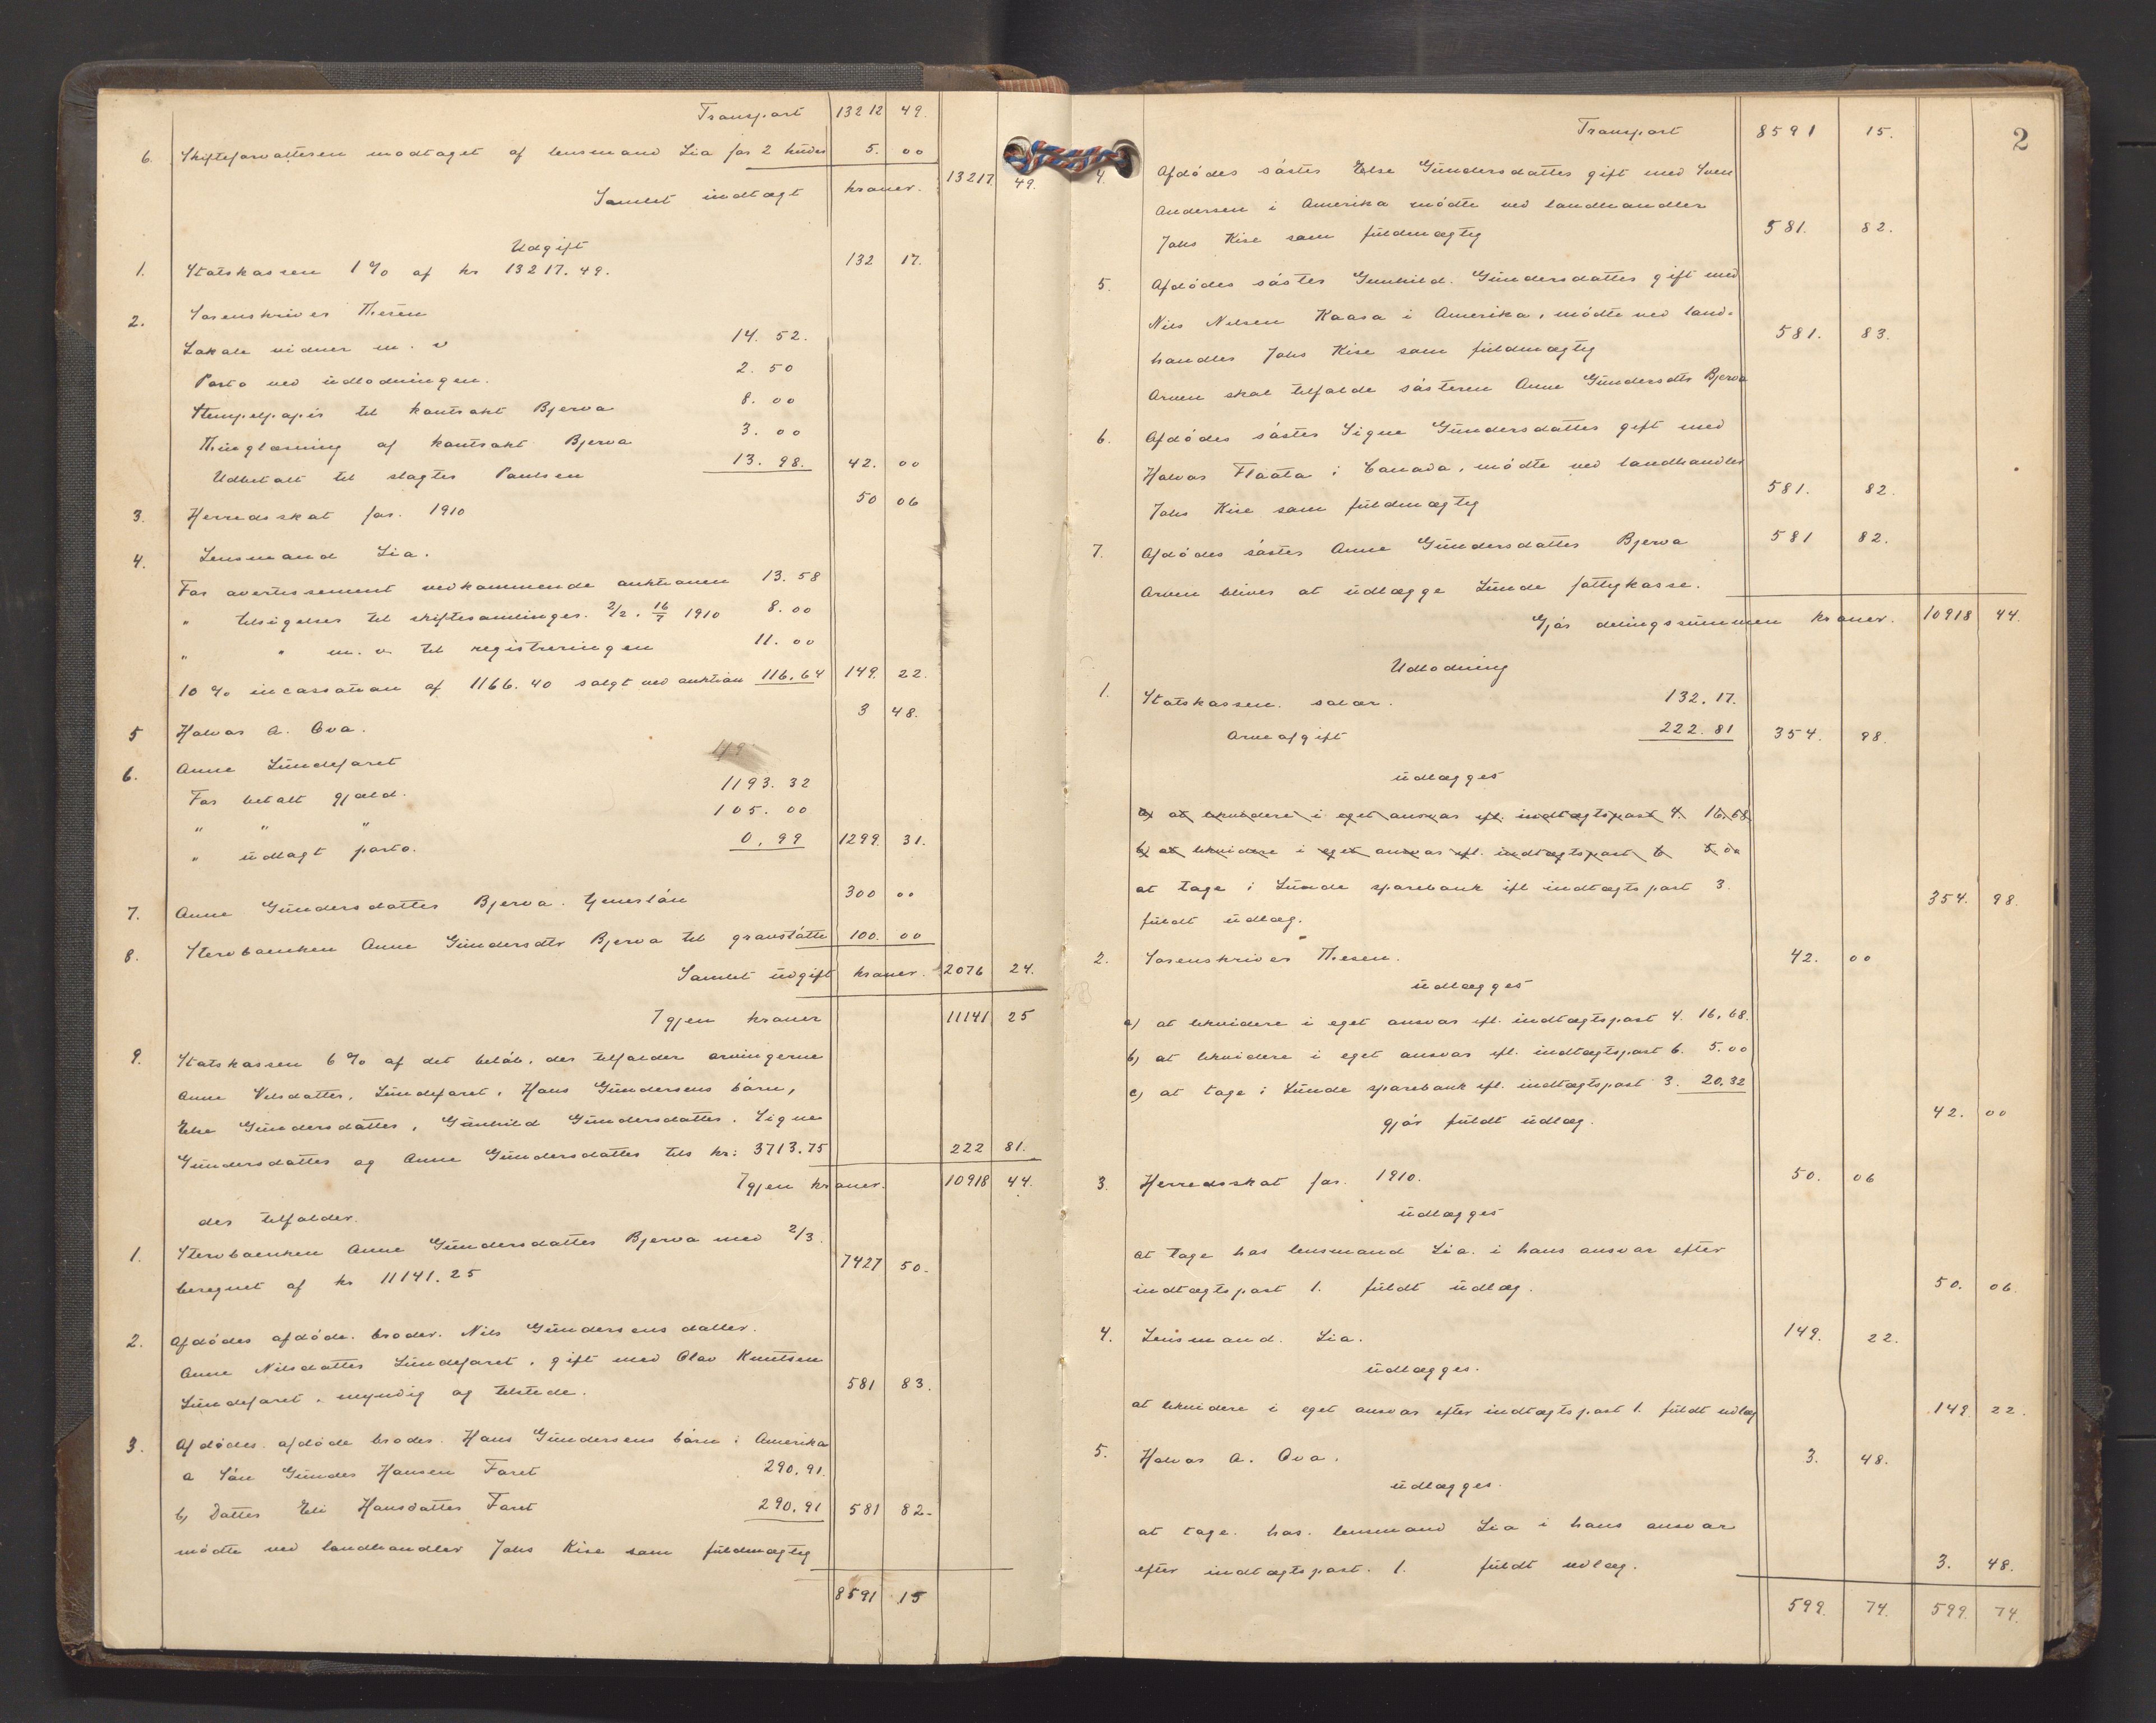 Transport 13212 49.
6. Skifteforvalteren modtaget af lensmand Lia for 2 huder 5. 00
Samlet indtægt kroner. 13217 49.
Udgift
1. Statskassen 1 % af kr 13217.49. 132 17.
2. Sorenskriver Thesen
Lokale vidner m. v 14. 52.
Porto ved udlodningen. 2. 50
Stempelpapir til kontrakt Bjerva 8. 00
Thinglæsning af kontrakt Bjerva 3. 00
Udbetalt til slagter Paulsen 13. 98. 42. 00
3. Herredsskat for. 1910 50 06
4. Lensmand Lia.
For avertissement vedkommende auktionen 13. 58
" tilsigelser til skiftesamlinger. 2/2. 16/7 1910 8. 00
" " m. v. til registreringen 11. 00
10 % incassation af 1166.40 solgt ved auktion 116.64 149. 22.
5 Halvor A. Ova. 3 48.
6. Anne Lundefaret
For betalt gjæld. 1193. 32
" " " 105. 00
" udlagt porto. 0. 99 1299. 31.
7. Anne Gundersdatter Bjerva. tjenerløn 300 00
8. Stervboenken Anne Gundersdtr Bjerva til gravstøtte 100. 00
Samlet udgift kroner. 2076 24.
Igjen kroner 11141 25
9. Statskassen 6 % af det beløb, der tilfalder arvingerne
Anne Nilsdatter, Lundefaret, Hans Gundersens børn,
Else Gundersdatter, Gunhild Gundersdatter. Signe
Gundersdatter og Anne Gundersdatter tils kr: 3713.75 222 81.
Igjen kroner. 10918 44.
der tilfalder.
1. Stervboenken Anne Gundersdatter Bjerva med 2/3.
beregnet af kr 11141.25 7427 50.
2. Afdødes afdøde. broder. Nils Gundersens datter.
Anne Nilsdatter Lundefaret, gift med Olav Knutsen
Lundefaret, myndig og tilstede. 581 83.
3. Afdødes. afdøde broder. Hans Gundersens børn i Amerika
a Søn Gunder Hansen Faret 290.91.
b) Datter Eli Hansdatter Faret 290.91 581 82.
mødte ved landhandler Johs Kise som fuldmægtig
8591 15
2
Transport 8591 15.
4. Afdødes søster Else Gundersdatter gift med Sven
Andersen i Amerika mødte ved landhandler
Johs Kise som fuldmægtig 581. 82.
5. Afdødes søster Gunhild. Gundersdatter gift med
Nils Nilsen Kaasa i Amerika, mødte ved land-
handler Johs Kise som fuldmægtig 581. 83.
Arven skal tilfalde søsteren Anne Gundersdtr Bjerva
6. Afdødes søster Signe Gundersdatter gift med
Halvor Flaata i Canada, mødte ved landhandler
Johs Kise som fuldmægtig 581. 82.
7. Afdødes søster Anne Gundersdatter Bjerva 581 82.
Arven bliver at udlægge Lunde fattigkasse.
Gjør delingssummen kroner. 10918 44.
Udlodning
1. Statskassen. salær. 132. 17.
Arveafgift 222. 81 354. 98.
udlægges
a) at likvidere i eget ansvar efl. indtægtspost 4. 16.68
b) at likvidere i eget ansvar efl. indtægtspost 6 5 00
at tage i Lunde sparebank ifl indtægtspost 3.
fuldt udlæg. 354. 98.
2. Sorenskriver Thesen. 42. 00
udlægges
a) at likvidere i eget ansvar efl. indtægtspost 4. 16,68.
b) at likvidere i eget ansvar efl. indtægtspost 6. 5.00
c) at tage i Lunde sparebank efl. indtægtspost 3. 20.32
gjør fuldt udlæg. 42. 00
3. Herredsskat for. 1910. 50. 06
udlægges
at tage hos lensmand Lia. i hans ansvar efter
indtægtspost 1. fuldt udlæg. 50. 06.
4. Lensmand. Lia. 149. 22.
udlægges.
at likvidere i eget ansvar efter indtægtspost 1. fuldt udlæg 149 22.
5. Halvor A. Ova. 3. 48.
udlægges.
at tage. hos. lensmand Lia i hans ansvar
efter indtægtspost. 1. fuldt udlæg. 3. 48.
599. 74. 599. 74.